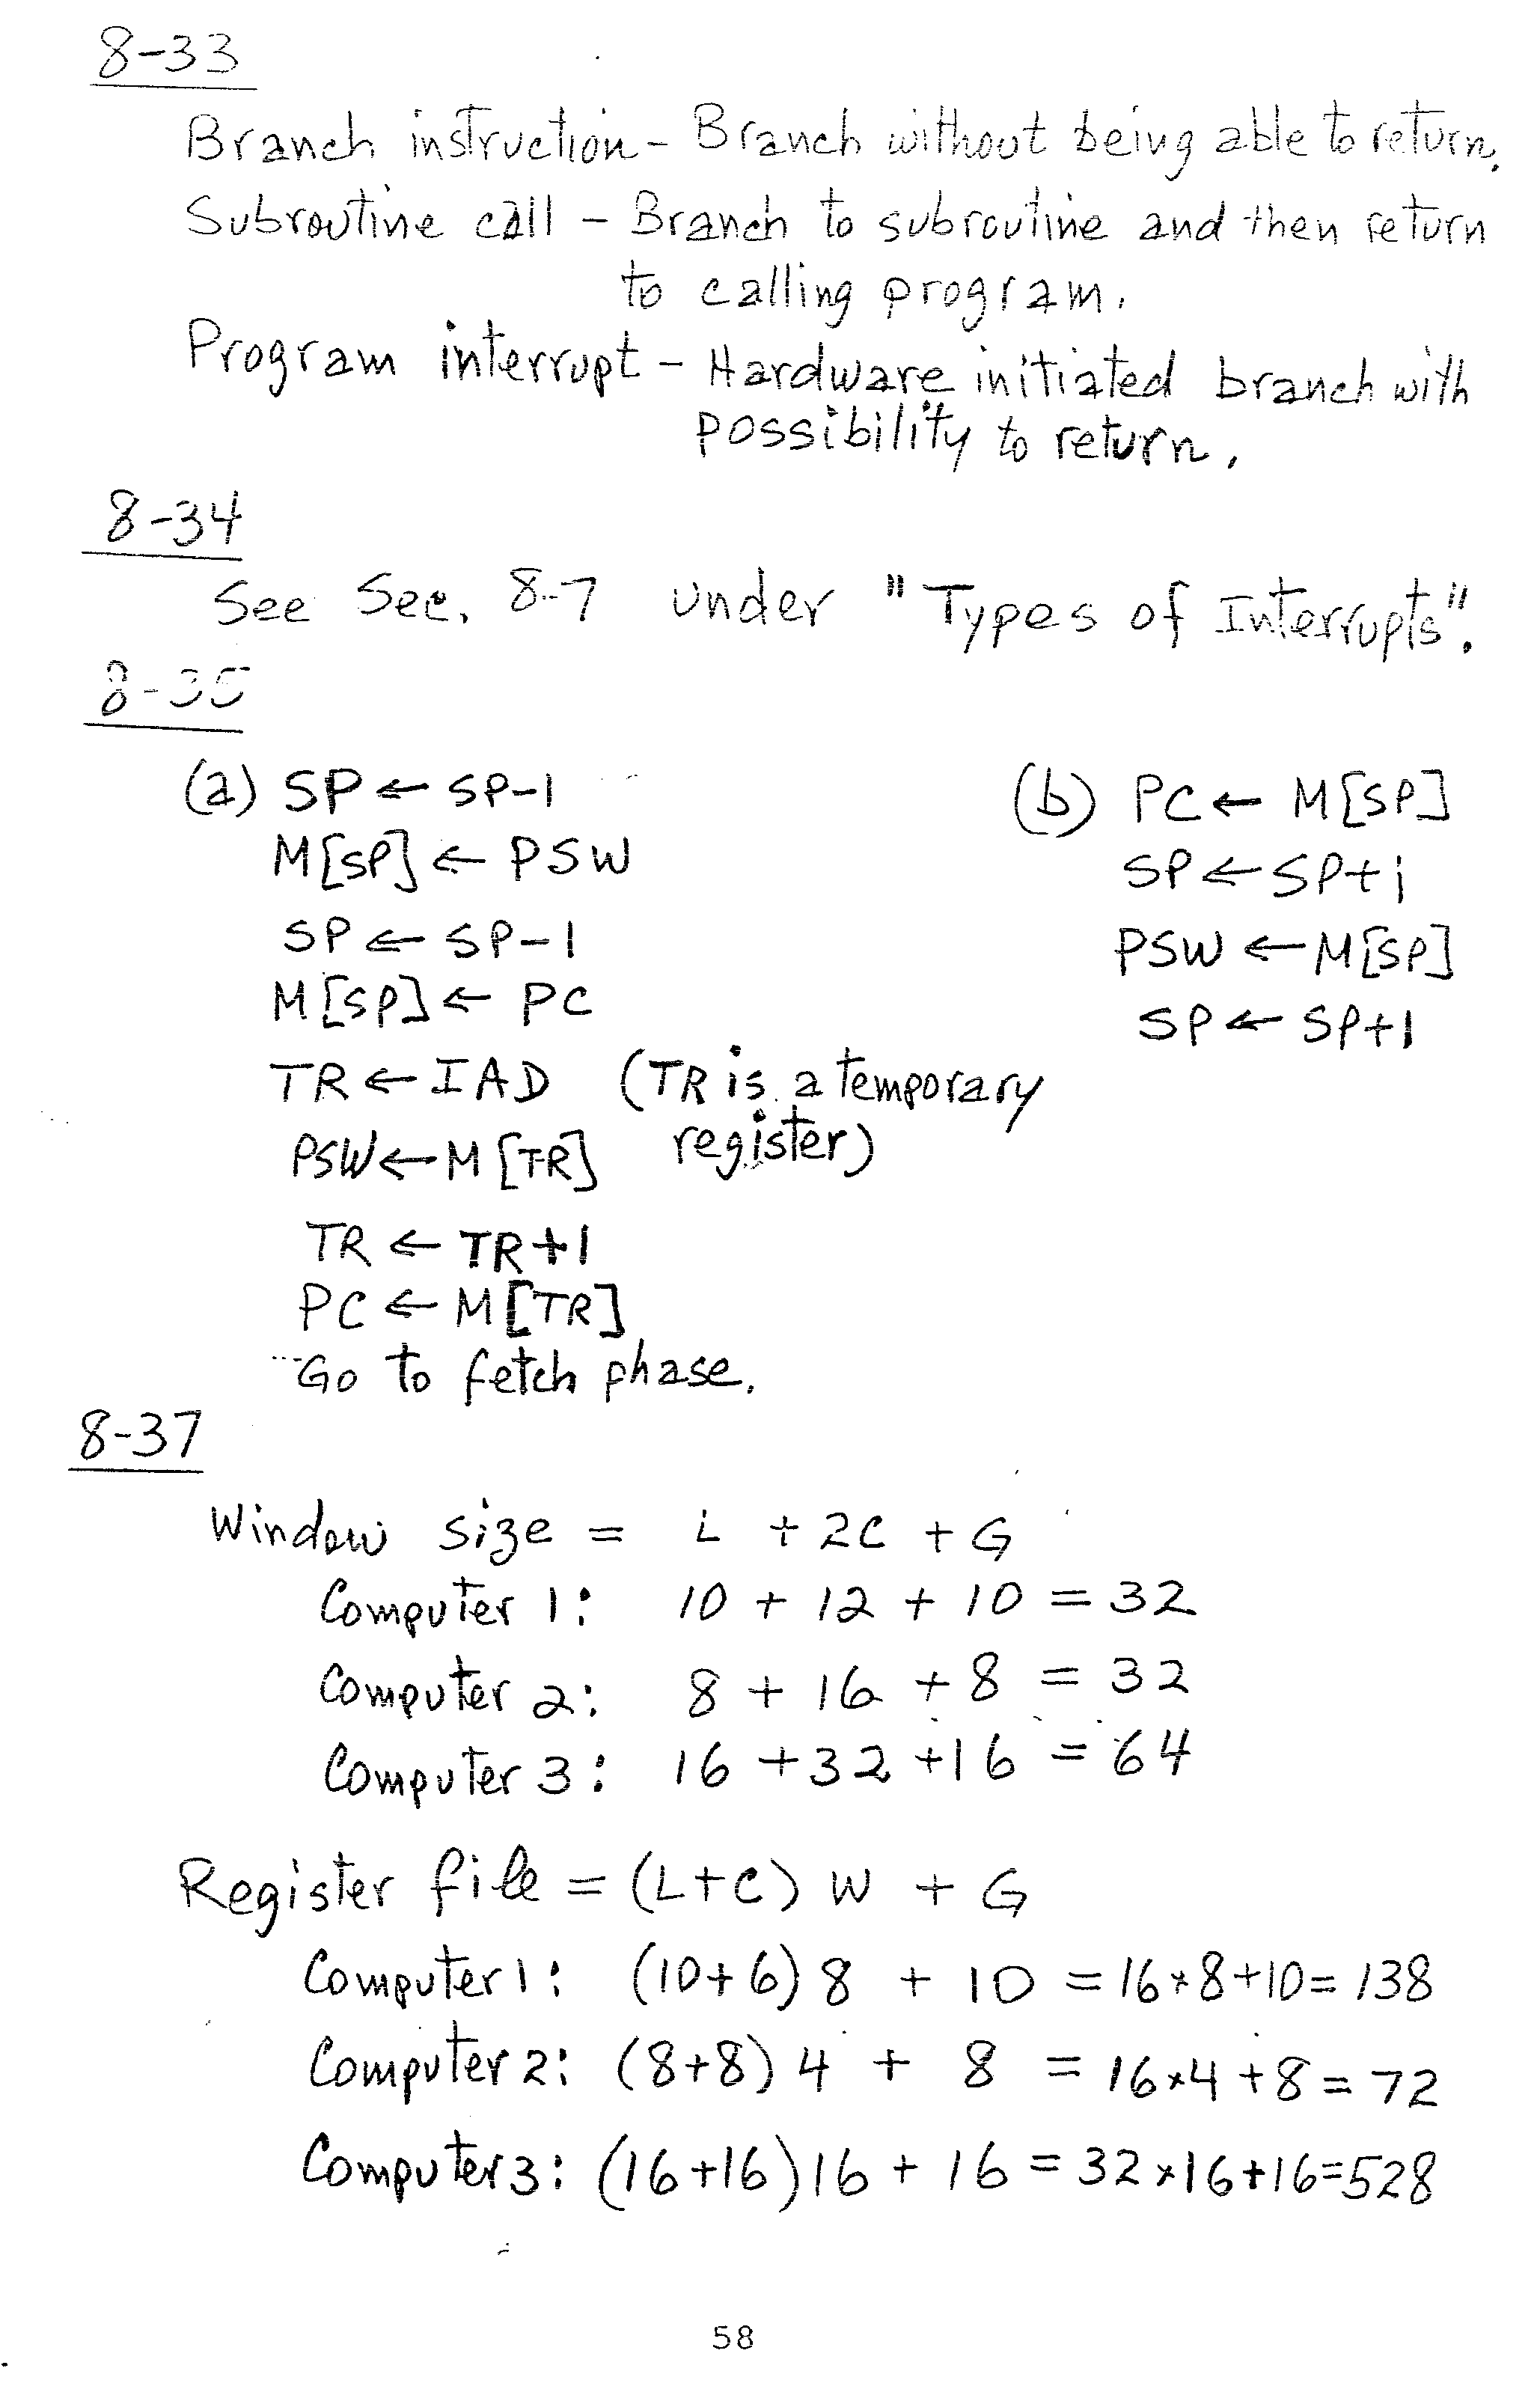 8-33
Branch instruction - Branch without being able to return.
Subroutine call - Branch to subroutine and then return
to calling program.
Program interrupt - Hardware initiated branch with
possibility to return.
8-34
See Sec. 8-7 under "Types of Interrupts".
8-35
(a) SP ← SP-1
M[SP] ← PSW
SP ← SP-1
M[SP] ← PC
TR ← IAD (TR is a temporary
register)
PSW ← M[TR]
TR ← TR+1
PC ← M[TR]
Go to fetch phase.
(b) PC ← M[SP]
SP ← SP+1
PSW ← M[SP]
SP ← SP+1
8-37
Window size = L + 2C + G
Computer 1: 10 + 12 + 10 = 32
Computer 2: 8 + 16 + 8 = 32
Computer 3: 16 + 32 + 16 = 64
Register file = (L+C) W + G
Computer 1: (10+6) 8 + 10 = 16*8+10= 138
Computer 2: (8+8) 4 + 8 = 16*4+8= 72
Computer 3: (16+16)16 + 16 = 32*16+16=528
58